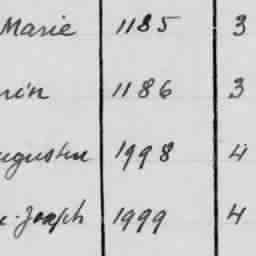 Marie 1185 3
rin 1186 3
ugustin 1998 4
x. Joseph 1999 4